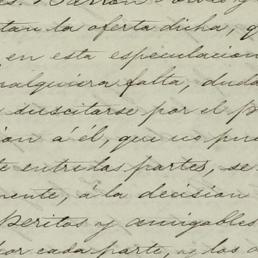 tan la oferta dicha, q
en esta especulacion
alquiera falta, duda
suscitarse por el P
ion á él, que no pue
entre las partes, se
mente, á la decision
Peritos y amigables
por cada parte, y los d